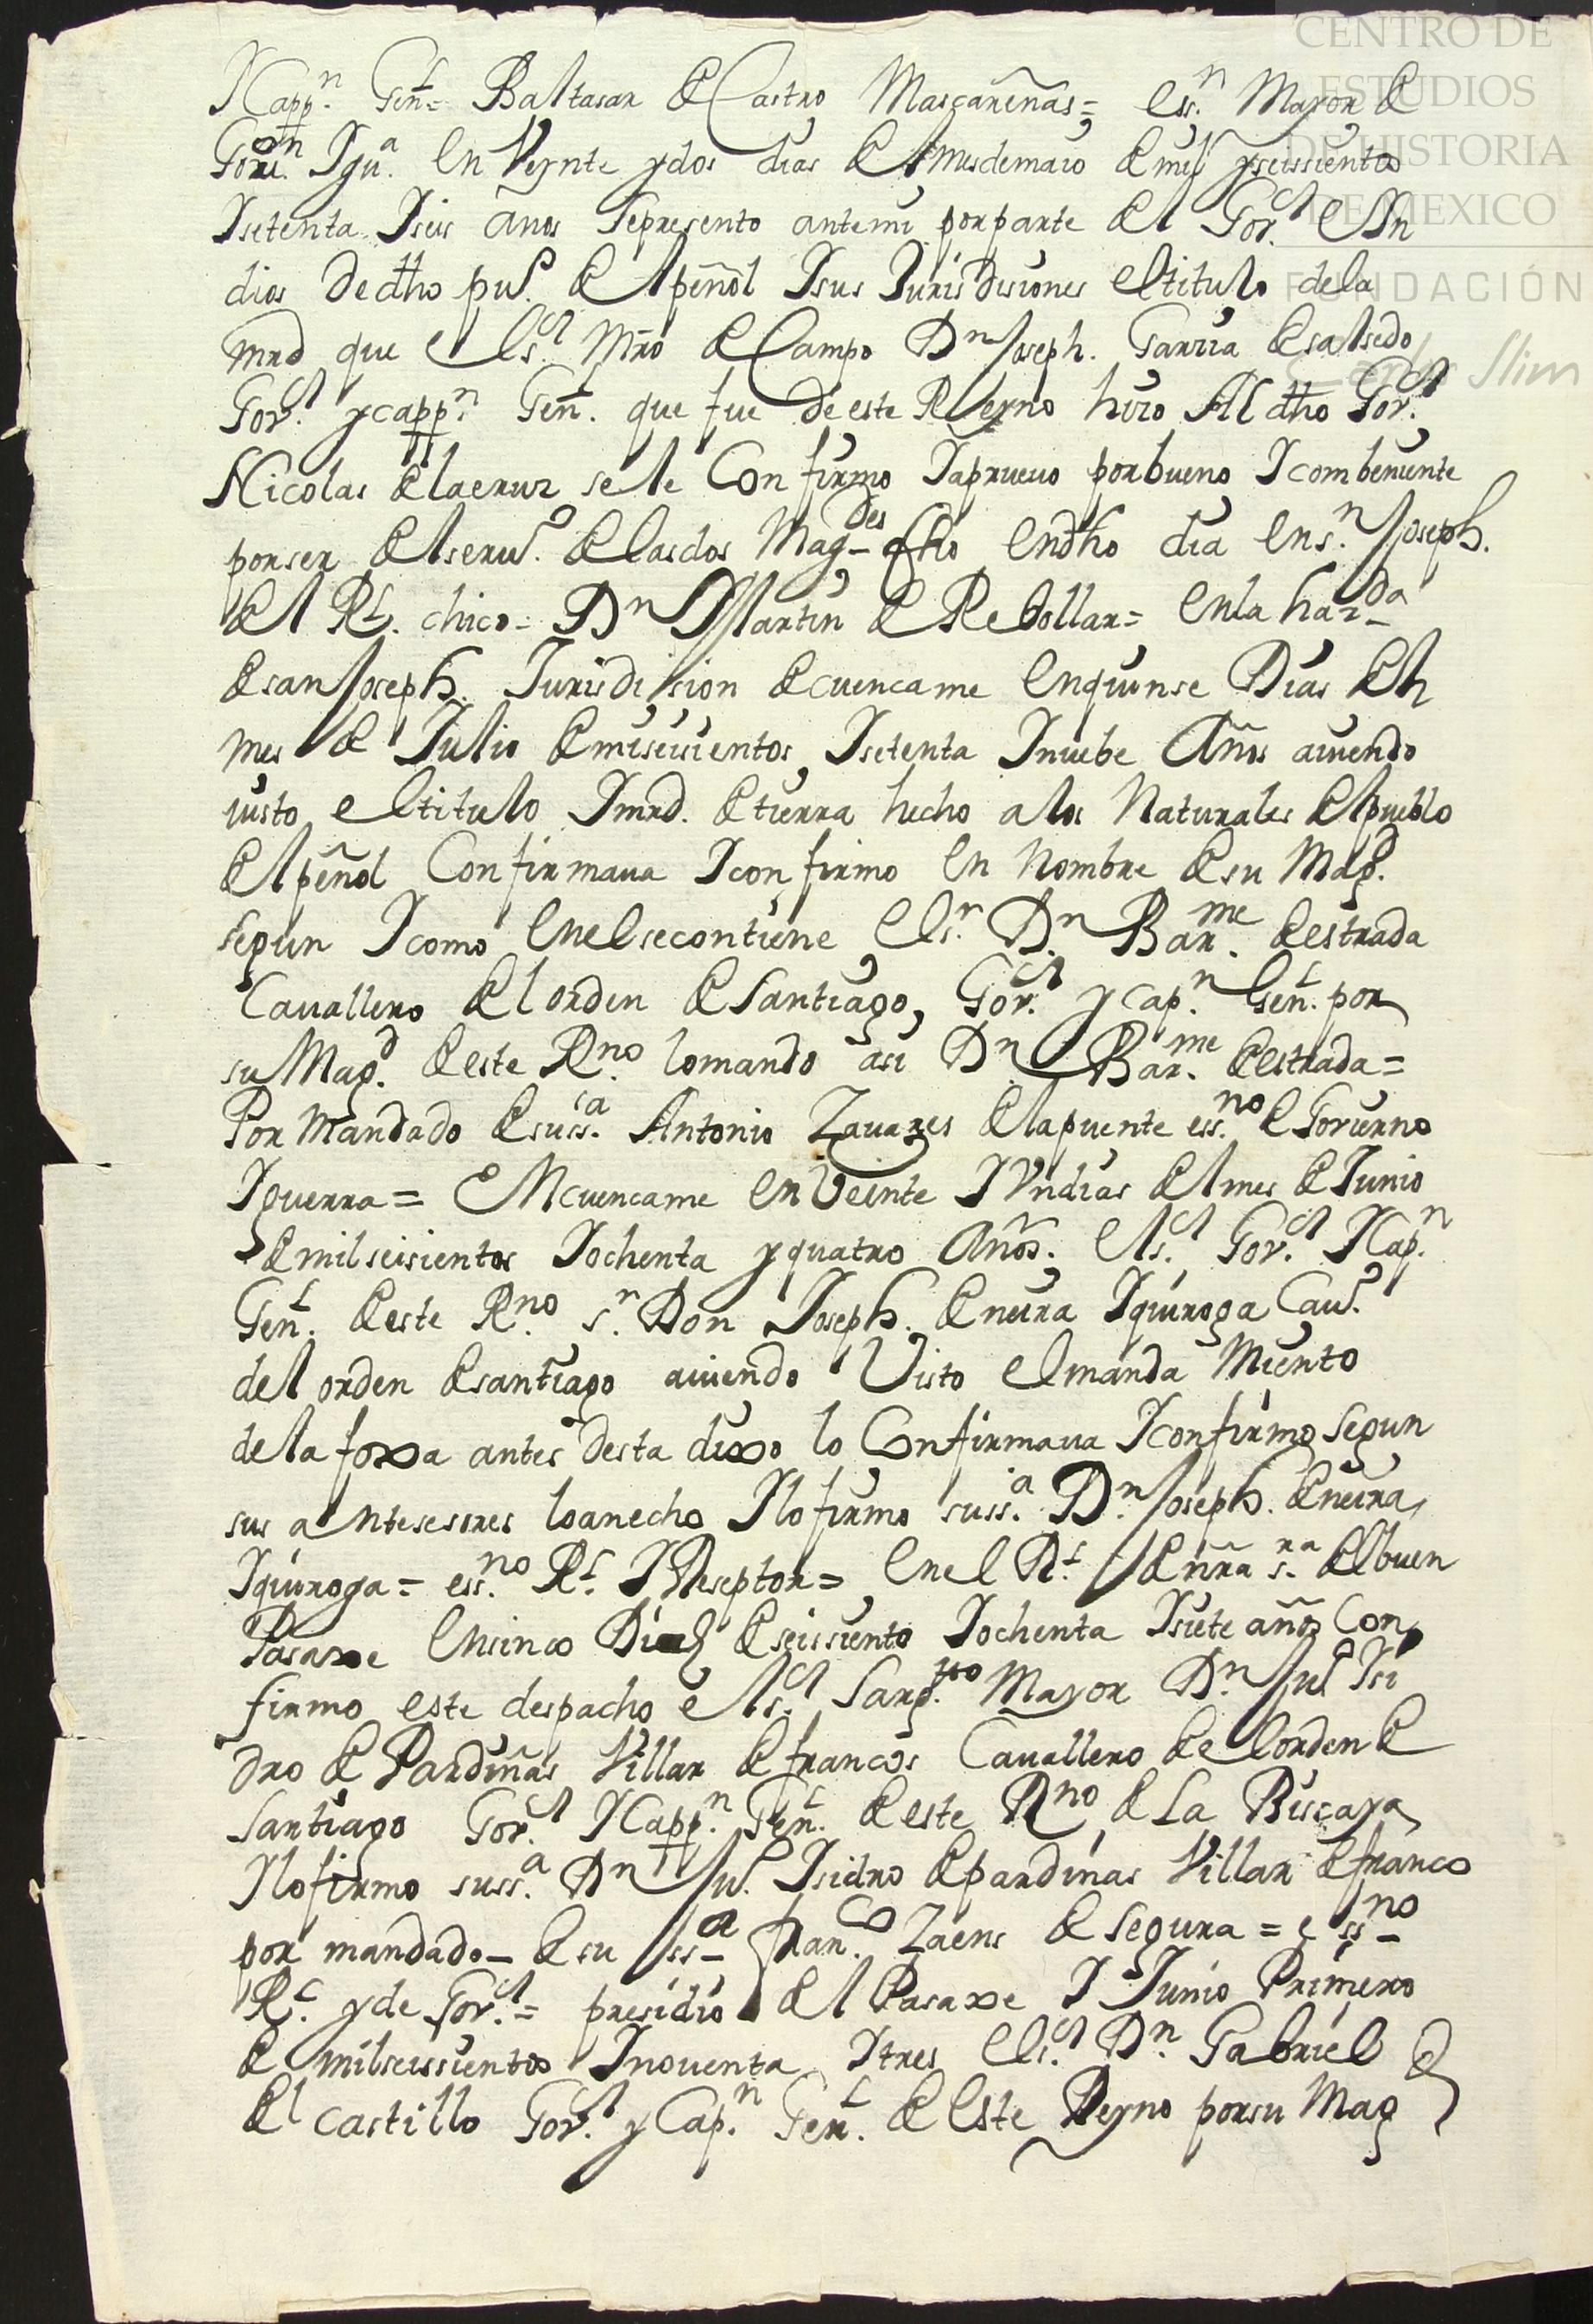 CENTRO DE
ESTUDIOS
DE HISTORIA
DE MEXICO
FUNDACIÓN
Carlos Slim
YCappn. Genl= Baltasar de Castro Mascareñas= essn. Mayor de
Govn. Ygua. en Veynte ydos dias del mesdemaio de mil yseissientos
Ysetenta Yseis años Sepresento antemi porparte del Gor. de Yn
dios de dho pu.o del peñol Ysus Jurisdisiones eltitulo dela
mrd que el sr. Mro de Campo Dn Joseph. Garcia de salsedo
Gor. ycappn. Genl. que fue de este Reyno hizo Al dho Gor.
Nicolas de lacruz sele Confirmo Yaprueuo porbueno Ycombeniente
porser del serui.o de lasdos Magdes fho en dho dia en sn. Joseph.
del Rl. chico= Dn Martin de Rebollar= en la hazda
de san Joseph. Jurisdision de cuencame enquinse Dias del
mes de Julio de miseisientos Ysetenta Ynuebe Años auiendo
uisto eltitulo Ymrd. de tierra hecho alos Naturales del pueblo
del peñol Confirmaua Yconfirmo en Nombre de su Magd.
segun Ycomo enelsecontiene, el sr. Dn. Barme. de estrada
Cauallero del orden de Santiago, Gor. ycapn. Genl. por
su Magd. de este Rno. lomando asi Dn Barme. de estrada=
Por Mandado de su ssa. Antonio Zauares de lapuente essno. de Gouierno
Yguerra= En cuencame en Veinte Yvndias del mes de Junio
de milseisientos Yochenta yquatro Años. el sr. Gor. YCapn.
Genl. de este Rno. sr. Don Joseph. de neira Yquiroga Cauo.
del orden de santiago auiendo Visto elmanda Miento
de la foxa antes desta dixo lo Confirmaua Yconfirmo segun
sus antesesores loanecho Ylofirmo su ssa. Dn. Joseph. de neira,
Yquiroga= essno. Rl. YReseptor= enel Rl. de nra sra. del buen
Pasaxe ensinco Dias de seissiento Yochenta Ysiete años Con
firmo este despacho el sr. Sargto Mayor Dn. Ju.o Ysi
dro de Pardiñas Villar de francos Cauallero de el orden de
Santiago Gor. YCappn. Genl. de este Rno de La Biscaya
Ylofirmo su ssa. Dn Ju.o Ysidro de pardinas Villar de franco
por mandado_ de su ssa_ franco. Zaens de segura= essno_
Rl. yde Gor.= presidio del Pasaxe Y Junio Primero
de milseissientos Ynouenta Ytres el sr. Dn. Gabriel
del Castillo Gor. yCapn. Genl. de este Reyno porsu Mag